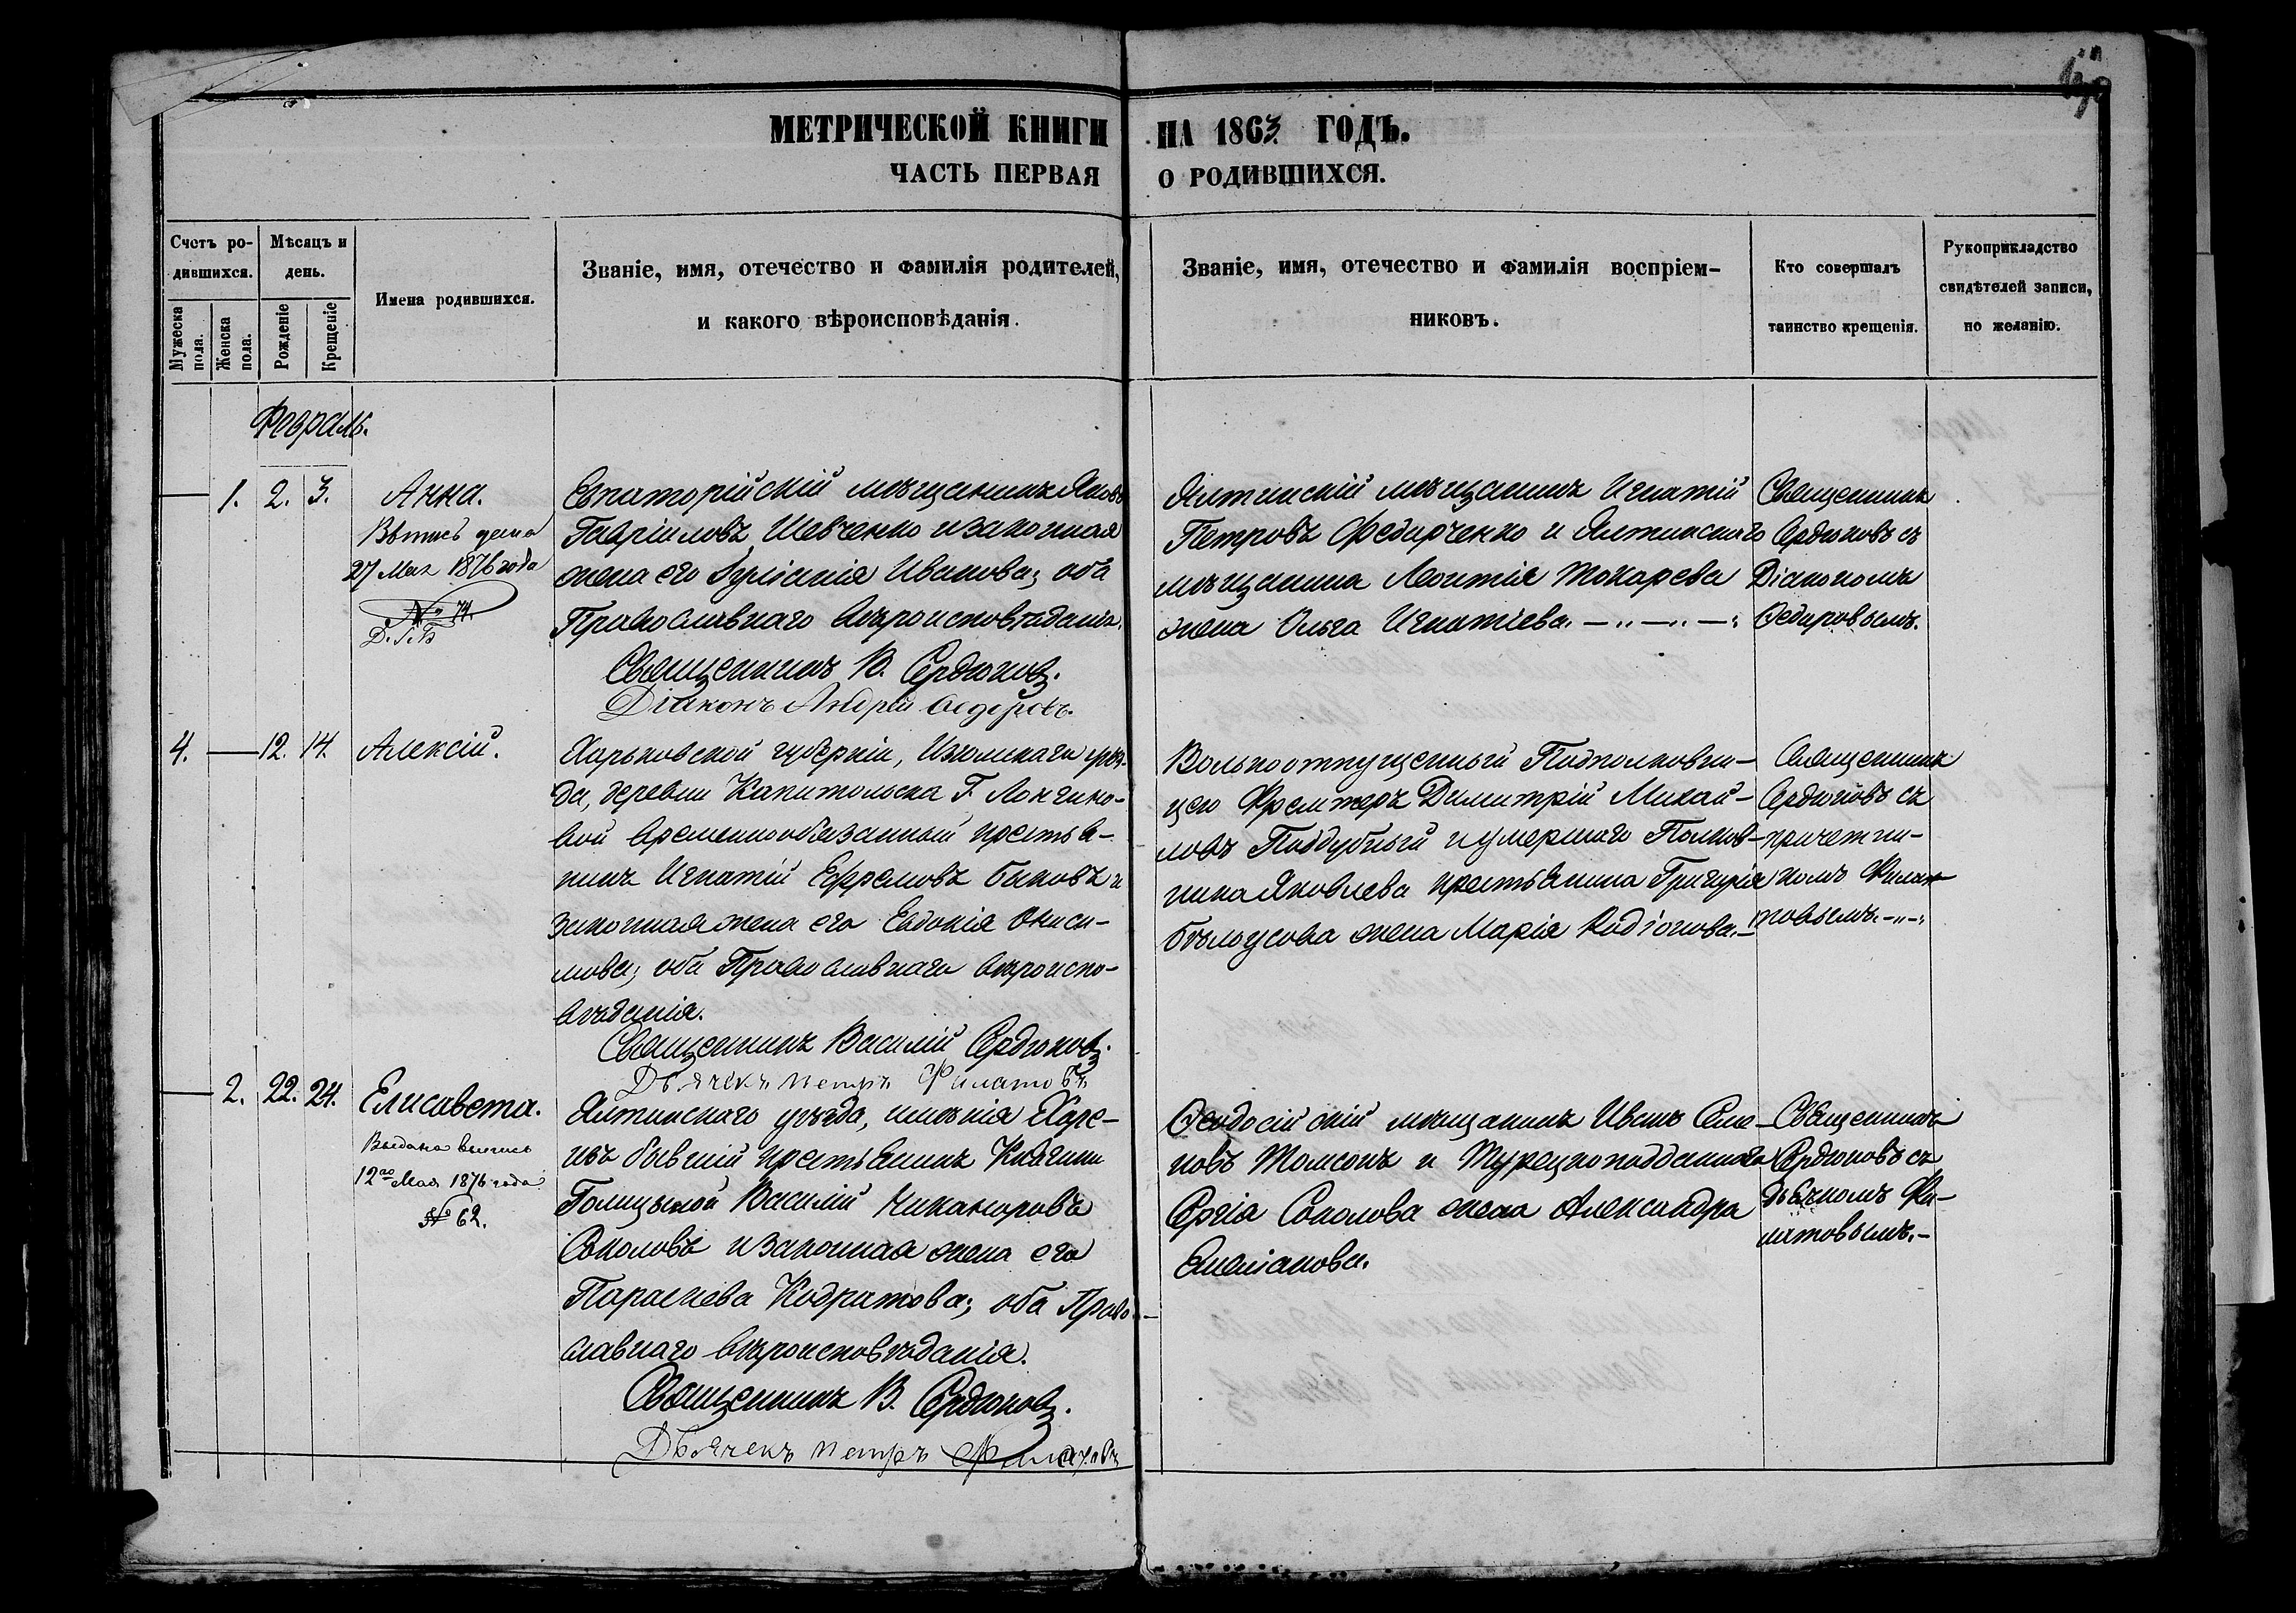 МЕТРИЧЕСКОЙ КНИГИ НА 1863 ГОДЪ.
ЧАСТЬ ПЕРВАЯ О РОДИВШИХСЯ.
Счетъ ро-
дившихся.
Мужеска
пола.
Женска
пола.
Мѣсяцъ и
день.
Рожденіе
Крещеніе
Имена родившихся.
Званіе, имя, отечество и фамилія родителей,
и какого вѣроисповѣданія.
Званіе, имя, отечество и фамилія воспріем-
никовъ.
Кто совершалъ
таинство крещенія.
Рукоприкладство
свидѣтелей записи,
по желанію.
Февраль.
1. 2. 3.
Анна.
27 Мая 1876 года
№ 74.
Евпаторійскій мѣщанинъ Яковъ
Гавріиловъ Шевченко и законная
жена его Іуліанія Иванова; оба
Православнаго вѣроисповѣданія.
Священникъ В. Сердюковъ.
Діаконъ Андрей Федоровъ.
Ялтинскій мѣщанинъ Игнатій
Петровъ Федорченко и Ялтинскаго
мѣщанина Леонтія Токарева
жена Ольга Игнатіева.
Священникъ
Сердюковъ съ
Діакономъ
Федоровымъ.
4. 12. 14.
Алексій.
Харьковской губерніи, Изюмскаго уѣз-
да, деревни Капитольска Г. Лонгино-
вой временнообязанный крестья-
нинъ Игнатій Ефремовъ Быковъ и
законная жена его Евдокія Ониси-
мова; оба Православнаго вѣроиспо-
вѣданія.
Священникъ Василій Сердюковъ.
Дьячекъ Петръ Филатовъ
Вольноотпущенный Подполковни-
цею Димитрій Михай-
ловъ Поддубный и умершаго Полков-
ника Яковлева крестьянина Григорія
Бѣлоусова жена Марія Родіонова.
Священникъ
Сердюковъ съ
причетни-
комъ Фила-
товымъ.
2. 22. 24.
Елисавета.
Выдана выпись
12го Мая 1876 года
№ 62.
Ялтинскаго уѣзда, имѣнія
изъ бывшій крестьянинъ Княгини
Голицыной Василій Никаноровъ
Соколовъ и законная жена его
Параскева Кодратова; оба Право-
славнаго вѣроисповѣданія.
Священникъ В. Сердюковъ.
Дьячекъ Петръ Филатовъ
Феодосійскій мѣщанинъ Иванъ Семе-
новъ Томсонъ и Турецкоподданнаго
Сергія Соколова жена Александра
Емеліанова.
Священникъ
Сердюковъ съ
дьячкомъ Фи-
латовымъ.